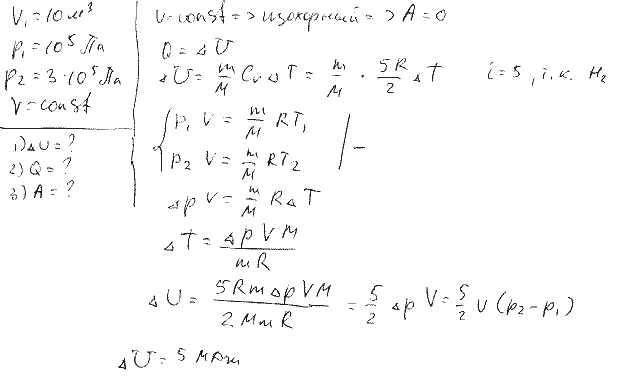 V₁ = 10 м³
p₁ = 10⁵ Па
p₂ = 3·10⁵ Па
V = const
1) ΔU = ?
2) Q = ?
3) A = ?
V = const => изохорный => A = 0
Q = ΔU
ΔU = m/M Cv ΔT = m/M · 5R/2 ΔT    i = 5, т.к. H₂
{ p₁ V = m/M RT₁
p₂ V = m/M RT₂ | −
Δp V = m/M R ΔT
ΔT = Δp V M / mR
ΔU = 5 R m Δp V M / 2 M m R = 5/2 Δp V = 5/2 V (p₂ − p₁)
ΔU = 5 МДж